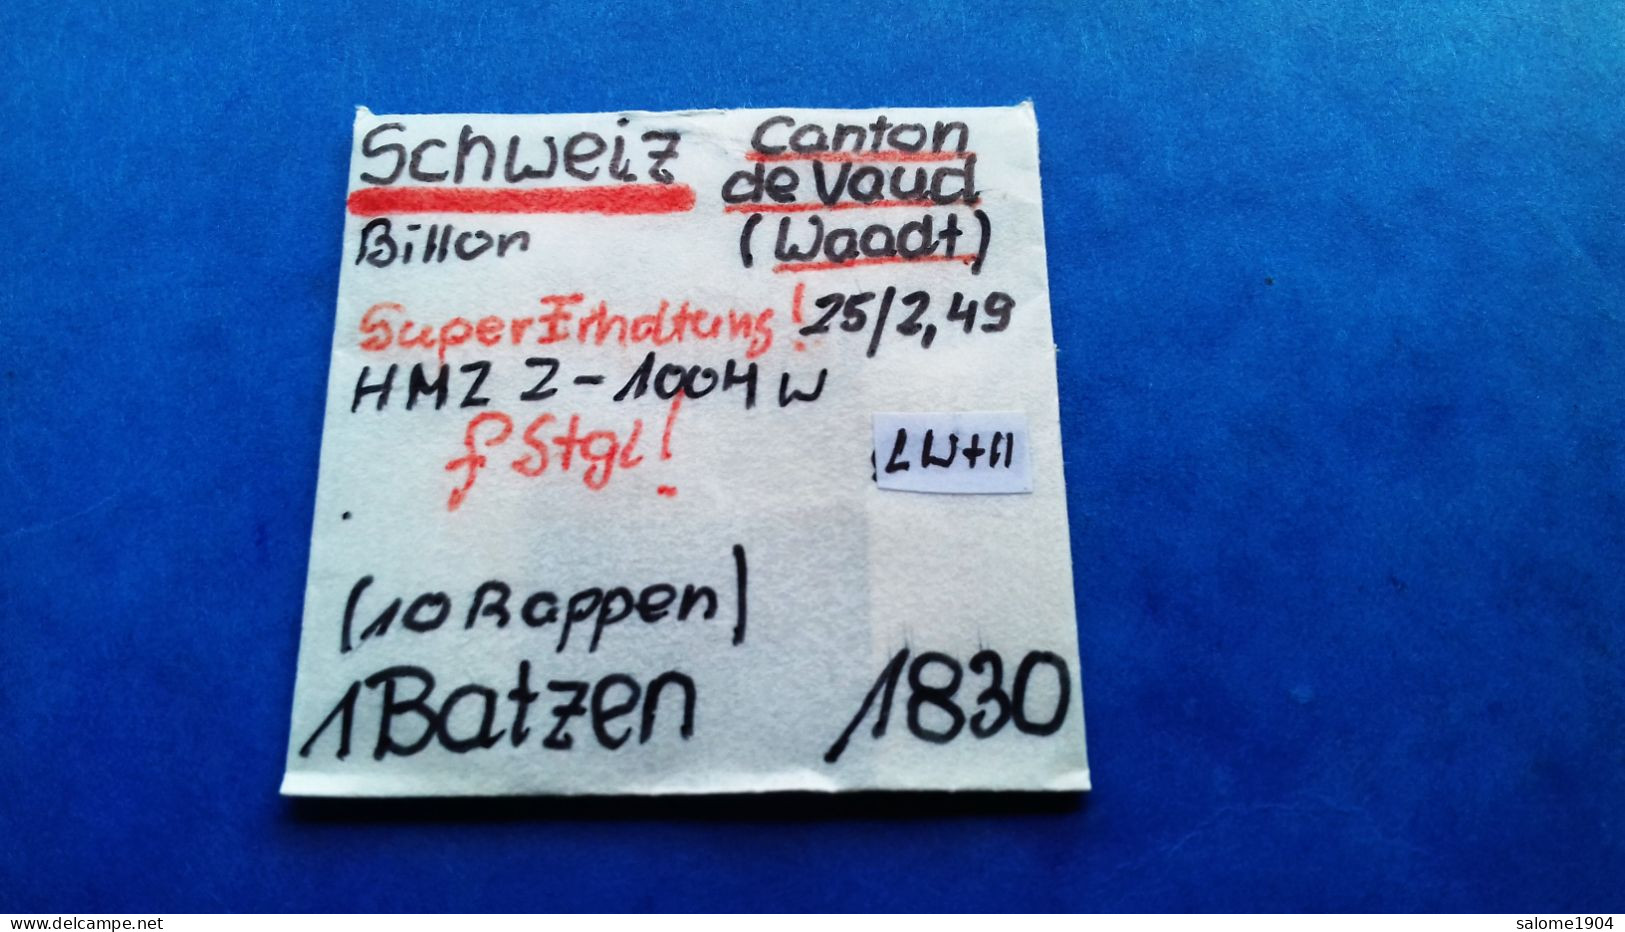 Schweiz Canton
de Vaud
Billon (Waadt)
Super Erhaltung! 25/2,49
HMZ 2-1004 w
f Stgl!
LW+11
(10 Rappen)
1 Batzen 1830
delcampe.net
salome1904